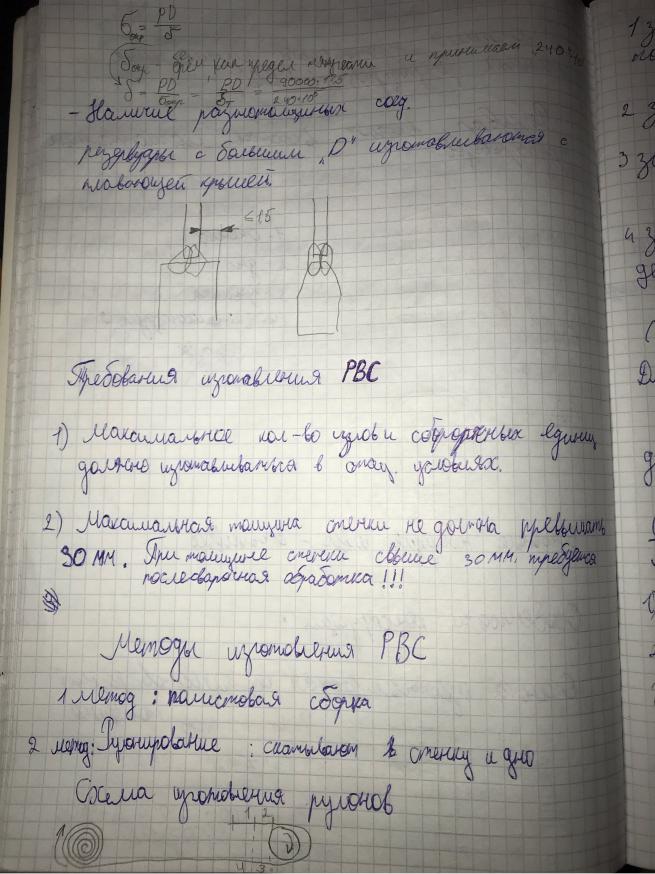 бокр = PD/δ
бокр - берём как предел текучести и принимаем 240·10
δ = PD/бокр = PD/бт = 90000·
- Наличие разнотолщинных соед.
резервуары с большим „D" изготавливаются с
плавающей крышей.
≤15
Требования изготавления РВС
1) Максимальное кол-во узлов и сборочных единиц
должно изготавливаться в стац. условиях.
2) Максимальная толщина стенки не должна превышать
30 мм. При толщине стенки свыше 30 мм. требуется
послесварочная обработка!!!
Методы изготовления РВС
1 метод: полистовая сборка
2 метод: Рулонирование : скатывают стенку и дно
Схема изготовления рулонов
1 2
4 3
1 з
2 з
3 за
4 з